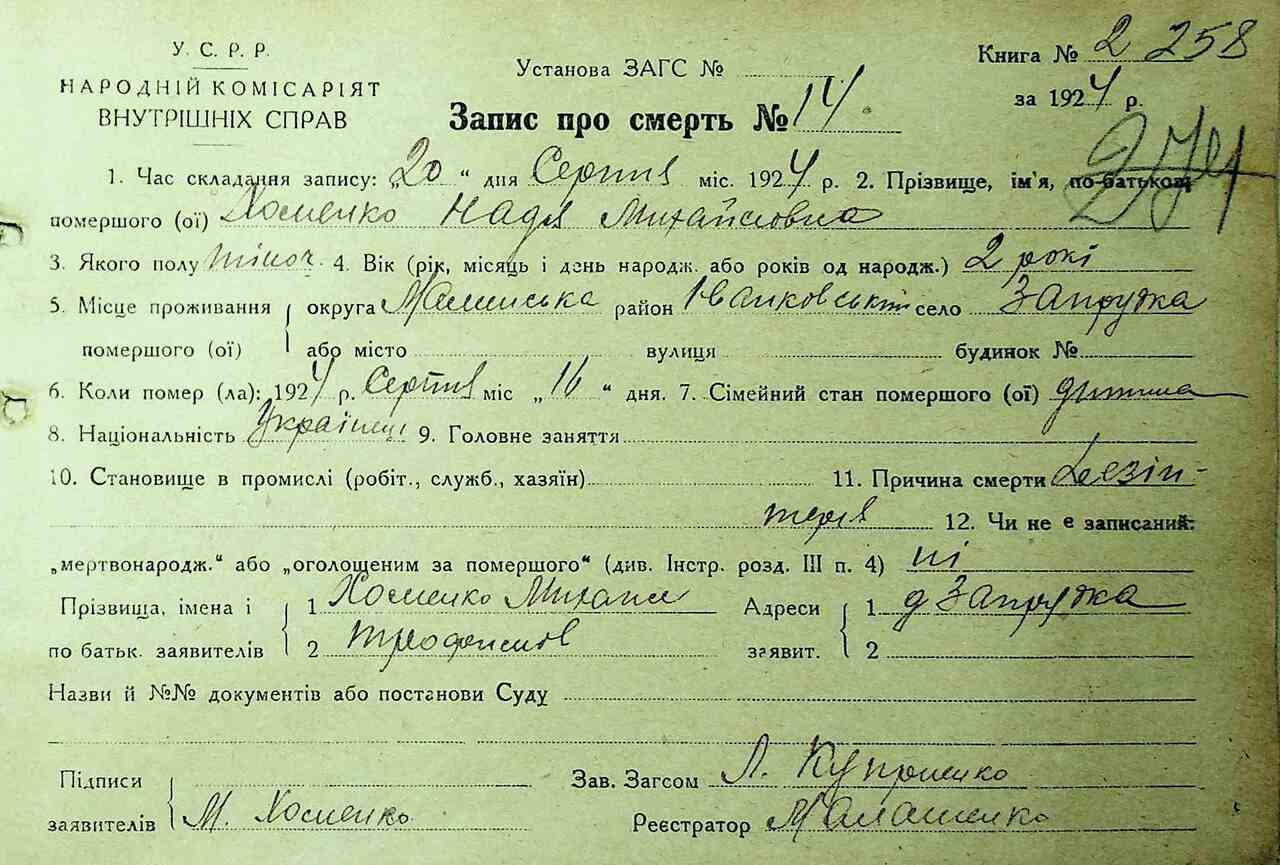 У. С. Р. Р.
НАРОДНІЙ КОМІСАРІЯТ
ВНУТРІШНІХ СПРАВ
Установа ЗАГС №
Запис про смерть № 14
Книга № 2 258
за 1924 р.
1. Час складання запису: „20“ дня Серпня міс. 1924 р. 2. Прізвище, ім'я, по-батькові
помершого (ої) Хоменко Надія Михайловна
3. Якого полу жіноч. 4. Вік (рік, місяць і день народж. або років од народж.) 2 рокі
5. Місце проживання округа Малинська район Іванковський село Запрудка
помершого (ої) або місто вулиця будинок №
6. Коли помер (ла): 1924 р. Серпня міс „16“ дня. 7. Сімейний стан помершого (ої) дитина
8. Національність Українці 9. Головне заняття
10. Становище в промислі (робіт., служб., хазяїн) 11. Причина смерти Дезін-
терія 12. Чи не є записаний:
„мертвонародж.“ або „оголошеним за помершого“ (див. Інстр. розд. III п. 4) ні
Прізвища, імена і 1 Хоменко Михаил Адреси 1 д Запрудка
по батьк. заявителів 2 Трофимов заявит. 2
Назви й №№ документів або постанови Суду
Підписи Зав. Загсом Л. Куприенко
заявителів М. Хоменко Реєстратор Малашенко